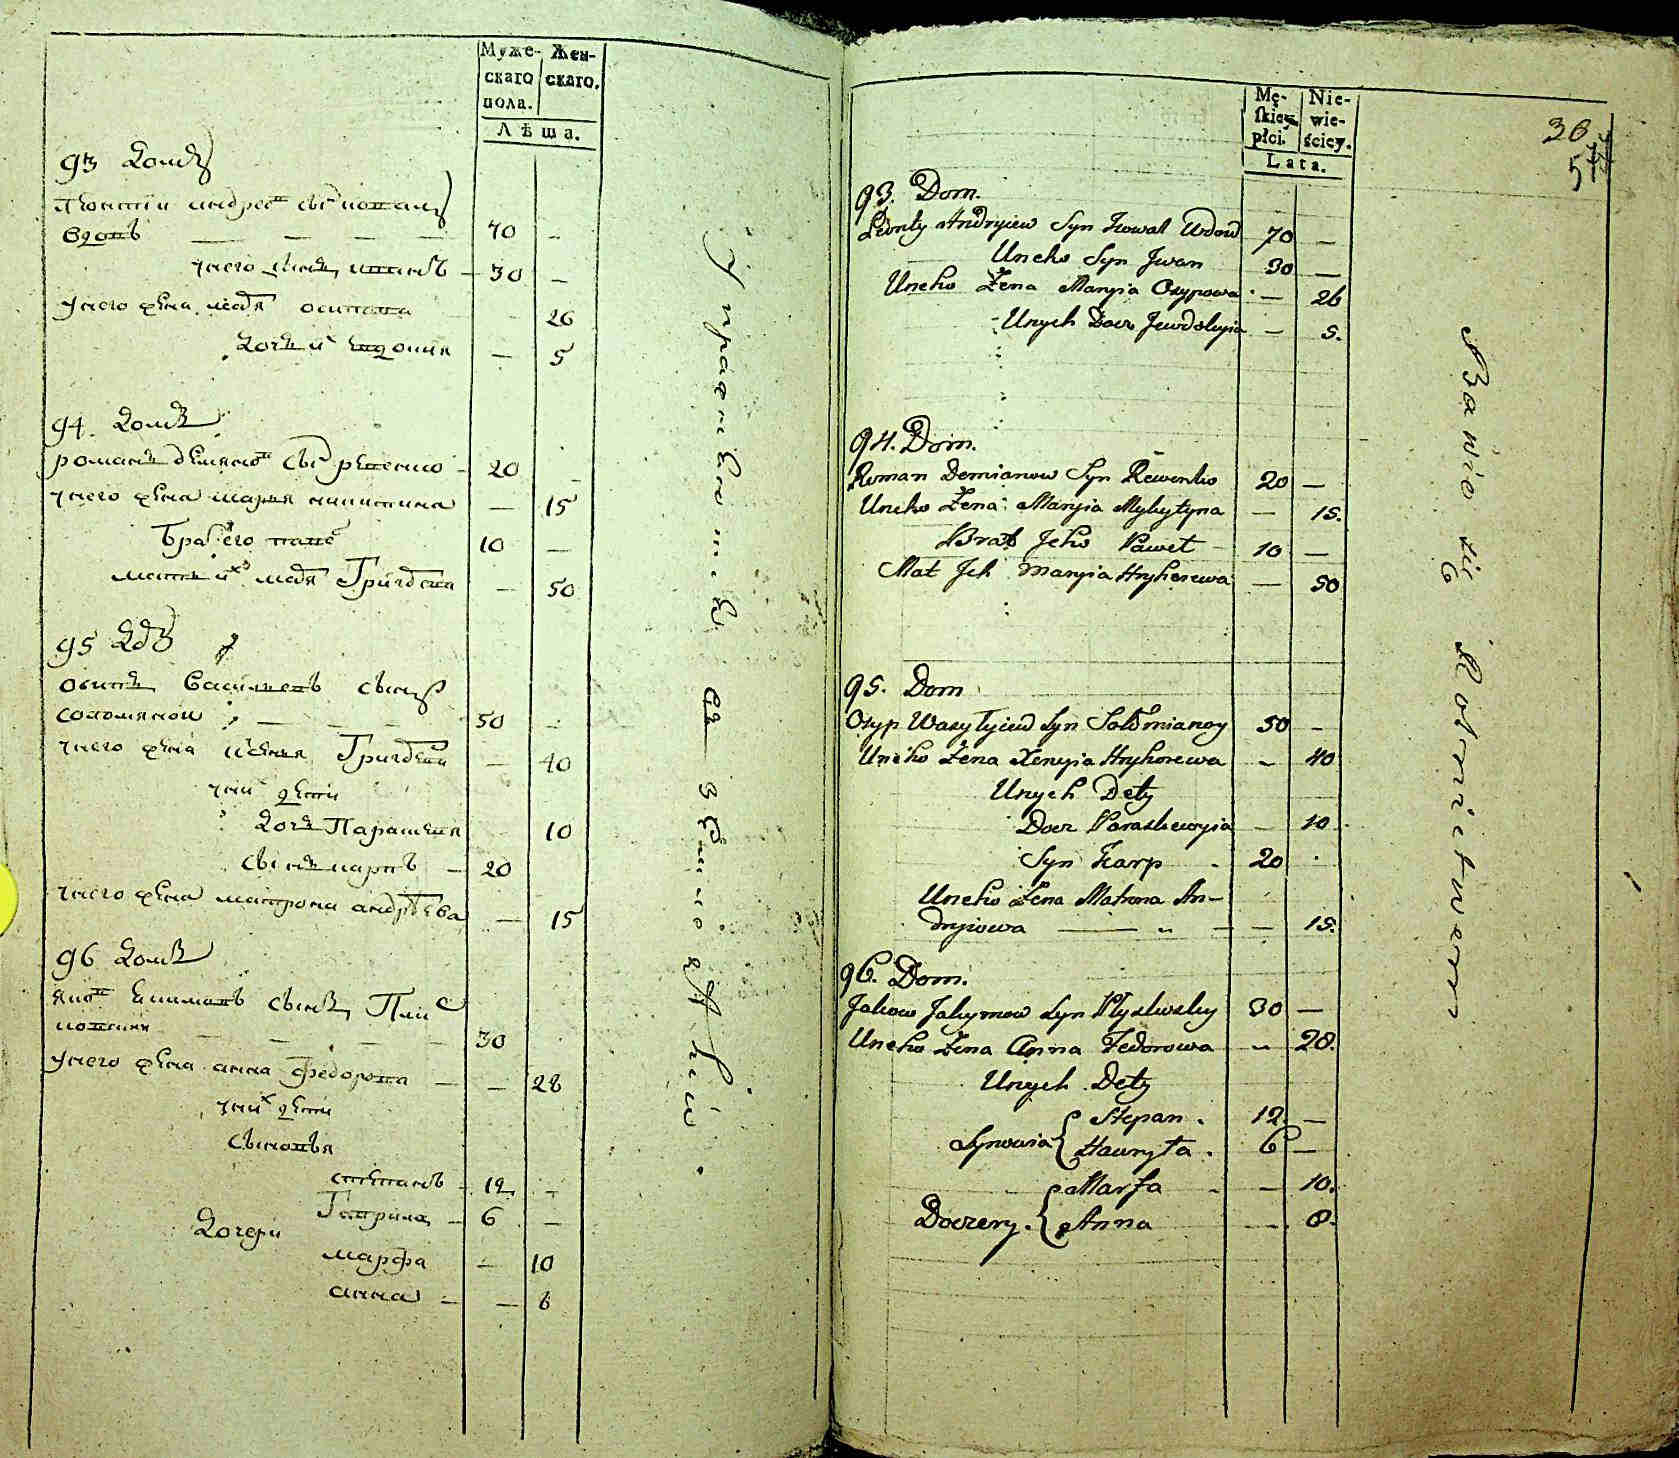 Муже-
скаго
пола.
Жен-
скаго.
Лѣта.
93 Домъ
Леонтій андреевъ сынъ коваль
вдовъ — — — — 70 —
унего сынъ иванъ — 30 —
унего жена марія осипова — 26
дочь ихъ евдокия — 5
94. Домъ
романъ демяновъ сынъ ревенко — 20 —
унего жена мария никитина — 15
братъ его павелъ 10 —
мать ихъ мария Григорева — 50
95 Домъ
осипъ василиевъ сынъ
соломяной — — — 50 —
унего жена ксения Григорева — 40
уних дети
дочь Парасковия — 10
сынъ карпъ — 20
унего жена матрона андреева — 15
96 Домъ
яковъ екимовъ сынъ Плис
ковский — — — 30
унего жена анна федорова — — 28
уних дети
сыновья
степанъ — 12 —
Гаврила — 6 —
Дочери
марфа — 10
анна — — 8
Упражняются въ земледѣлии.
Mę-
skiey
płci.
Nie-
wie-
ściey.
Lata.
36
57
93. Dom.
Leonty Andryiew Syn Kowal Udow 70 —
Uneho Syn Iwan 30 —
Uneho Żena Maryia Osypowa — 26
Unych Docz Jewdokyia — 5.
94. Dom.
Roman Demianow Syn Rewenko 20 —
Uneho Żena Maryia Mykytyna — 15.
Brat Jeho Paweł — 10 —
Mat Jch Maryia Hryhorewa — 50
95. Dom
Osyp Wasyłyiew Syn Sołomianoy 50 —
Uneho Żena Xenyia Hryhorewa — 40
Unych Dety
Docz Paraskewyia — 10
Syn Karp 20
Uneho Żena Matrona An-
dryiowa — — 15.
96. Dom.
Jakow Jakymow Syn Płyskwsky 30 —
Uneho Żena Anna Fedorowa — 28.
Unych Dety
Synowia { Stepan. 12. —
Hawryła. 6 —
Doczery. { Marfa — 10.
Anna — 8.
Bawio się Rolnictwem